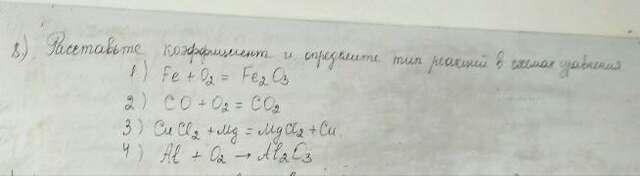 8.) Расставьте коэффициент и определите тип реакций в схемах уравнения
1) Fe + O₂ = Fe₂O₃
2) CO + O₂ = CO₂
3) CuCl₂ + Mg = MgCl₂ + Cu.
4) Al + O₂ → Al₂O₃